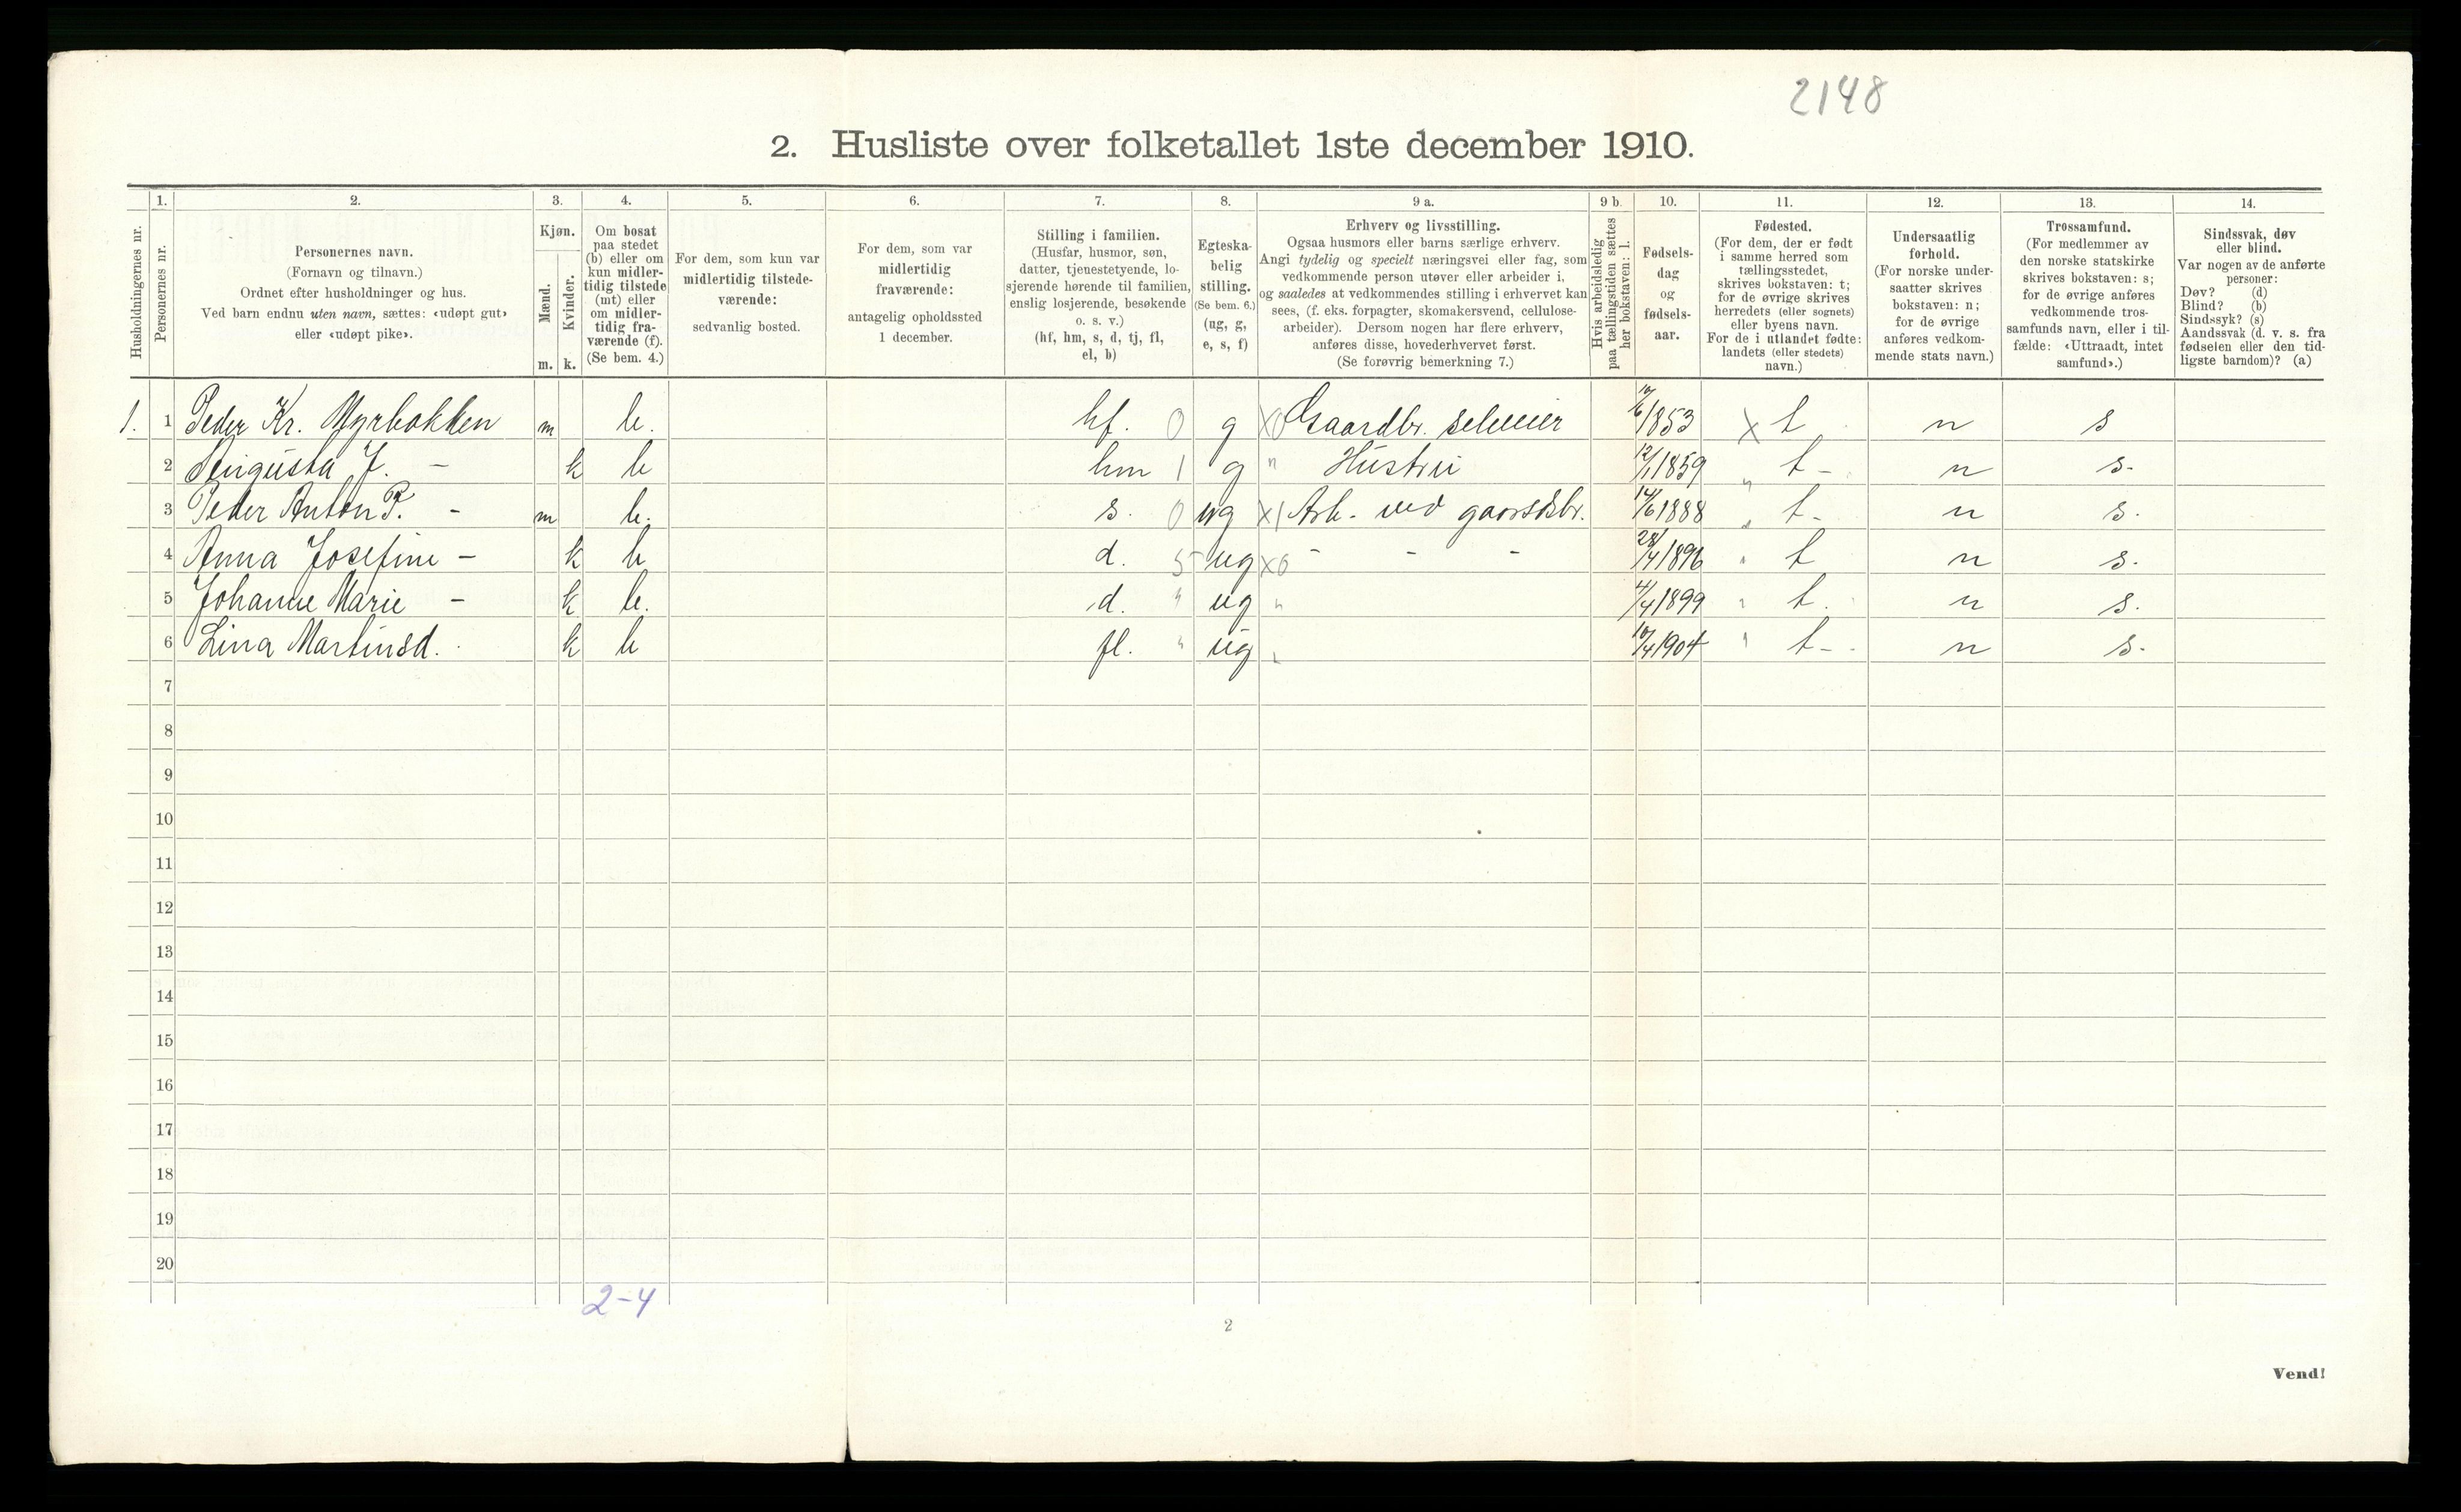 2148
2. Husliste over folketallet 1ste december 1910.
Husholdningernes nr.
1. Personernes nr.
2. Personernes navn.
(Fornavn og tilnavn.)
Ordnet efter husholdninger og hus.
Ved barn endnu uten navn, sættes: «udøpt gut»
eller «udøpt pike».
3. Kjøn.
Mænd. m.
Kvinder. k.
4. Om bosat
paa stedet
(b) eller om
kun midler-
tidig tilstede
(mt) eller
om midler-
tidig fra-
værende (f).
(Se bem. 4.)
5. For dem, som kun var
midlertidig tilstede-
værende:
sedvanlig bosted.
6. For dem, som var
midlertidig
fraværende:
antagelig opholdssted
1 december.
7. Stilling i familien.
(Husfar, husmor, søn,
datter, tjenestetyende, lo-
sjerende hørende til familien,
enslig losjerende, besøkende
o. s. v.)
(hf, hm, s, d, tj, fl,
el, b)
8. Egteska-
belig
stilling.
(Se bem. 6.)
(ug, g,
e, s, f)
9 a. Erhverv og livsstilling.
Ogsaa husmors eller barns særlige erhverv.
Angi tydelig og specielt næringsvei eller fag, som
vedkommende person utøver eller arbeider i,
og saaledes at vedkommendes stilling i erhvervet kan
sees, (f. eks. forpagter, skomakersvend, cellulose-
arbeider). Dersom nogen har flere erhverv,
anføres disse, hovederhvervet først.
(Se forøvrig bemerkning 7.)
9 b. Hvis arbeidsledig
paa tællingstiden sættes
her bokstaven: l.
10. Fødsels-
dag
og
fødsels-
aar.
11. Fødested.
(For dem, der er født
i samme herred som
tællingsstedet,
skrives bokstaven: t;
for de øvrige skrives
herredets (eller sognets)
eller byens navn.
For de i utlandet fødte:
landets (eller stedets)
navn.)
12. Undersaatlig
forhold.
(For norske under-
saatter skrives
bokstaven: n;
for de øvrige
anføres vedkom-
mende stats navn.)
13. Trossamfund.
(For medlemmer av
den norske statskirke
skrives bokstaven: s;
for de øvrige anføres
vedkommende tros-
samfunds navn, eller i til-
fælde: «Uttraadt, intet
samfund».)
14. Sindssvak, døv
eller blind.
Var nogen av de anførte
personer:
Døv? (d)
Blind? (b)
Sindssyk? (s)
Aandssvak (d. v. s. fra
fødselen eller den tid-
ligste barndom)? (a)
1. 1 Peder Kr. Myrbakken m b. hf. 0 g X0 Gaardbr. selveier 10/6 1853 X t n s
2 Augusta J. - k b hm 1 g " Hustru 12/1 1859 " t - n s-
3 Peder Anton P. - m b. s. 0 ug X1 Arb. ved gaardsbr. 14/6 1888 " t- n s.
4 Anna Josefine - k b d. 5 ug X0 - - - 28/4 1896 " t n s.
5 Johanne Marie - k b. d. " ug " 4/4 1899 " t. n s.
6 Lina Martinsd. k b fl. " ug " 10/4 1904 " t- n s.
7
8
9
10
11
12
13
14
15
16
17
18
19
20
2-4
2
Vend!